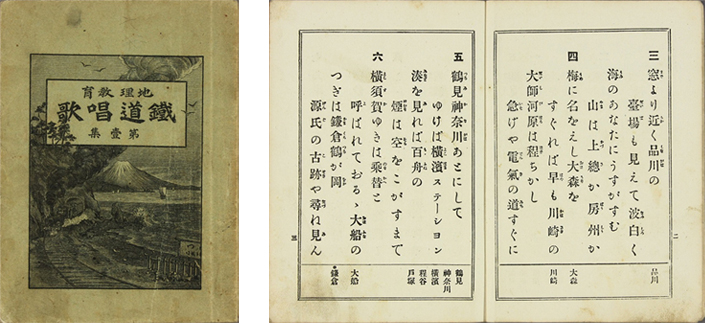 地理教育
鐵道唱歌
第壹集
三 窓より近く品川の
臺場も見えて波白く
海のあなたにうすがすむ
山は上總か房州か
四 梅に名をえし大森を
すぐれば早も川崎の
大師河原は程ちかし
急げや電氣の道すぐに
品川
大森
川崎
二
五 鶴見神奈川あとにして
ゆけば横濱ステーション
湊を見れば百舟の
煙は空をこがすまで
六 横須賀ゆきは乗替と
呼ばれておるゝ大船の
つぎは鎌倉鶴が岡
源氏の古跡や尋ね見ん
鶴見
神奈川
横濱
程谷
戸塚
大船
*鎌倉
三